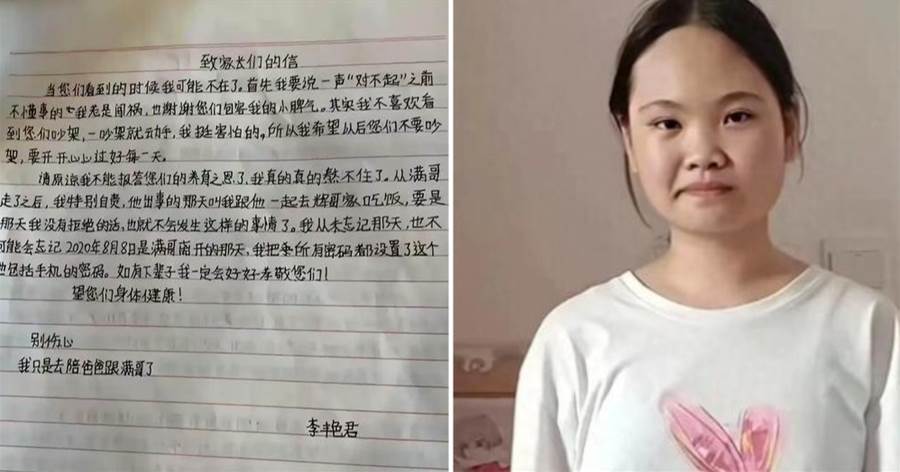 致家长们的信
当您们看到的时候我可能不在了。首先我要说一声“对不起”之前
不懂事的我老是闯祸，也谢谢您们包容我的小脾气。其实我不喜欢看
到您们吵架，一吵架就动手，我挺害怕的。所以我希望以后您们不要吵
架，要开开心心过好每一天。
请原谅我不能报答您们的养育之恩了，我真的真的熬不住了。从满哥
走了之后，我特别自责，他出事的那天叫我跟他一起去辉哥家吃饭，要是
那天我没有拒绝的话，也就不会发生这样的事情了。我从未忘记那天，也不
可能会忘记2020年8月8日是满哥离开的那天，我把所有密码都设置了这个
包括手机的密码。如有下辈子我一定会好好孝敬您们！
望您们身体健康！
别伤心
我只是去陪爸爸跟满哥了
李艳君